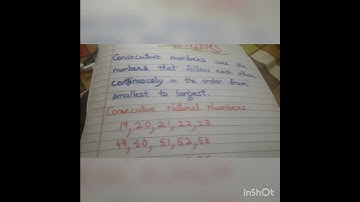 Consecutive numbers are the
numbers that follow each other
continuously in the order from
smallest to largest.
Consecutive Natural Numbers
19, 20, 21, 22, 23
49, 50, 51, 52, 53
InShOt